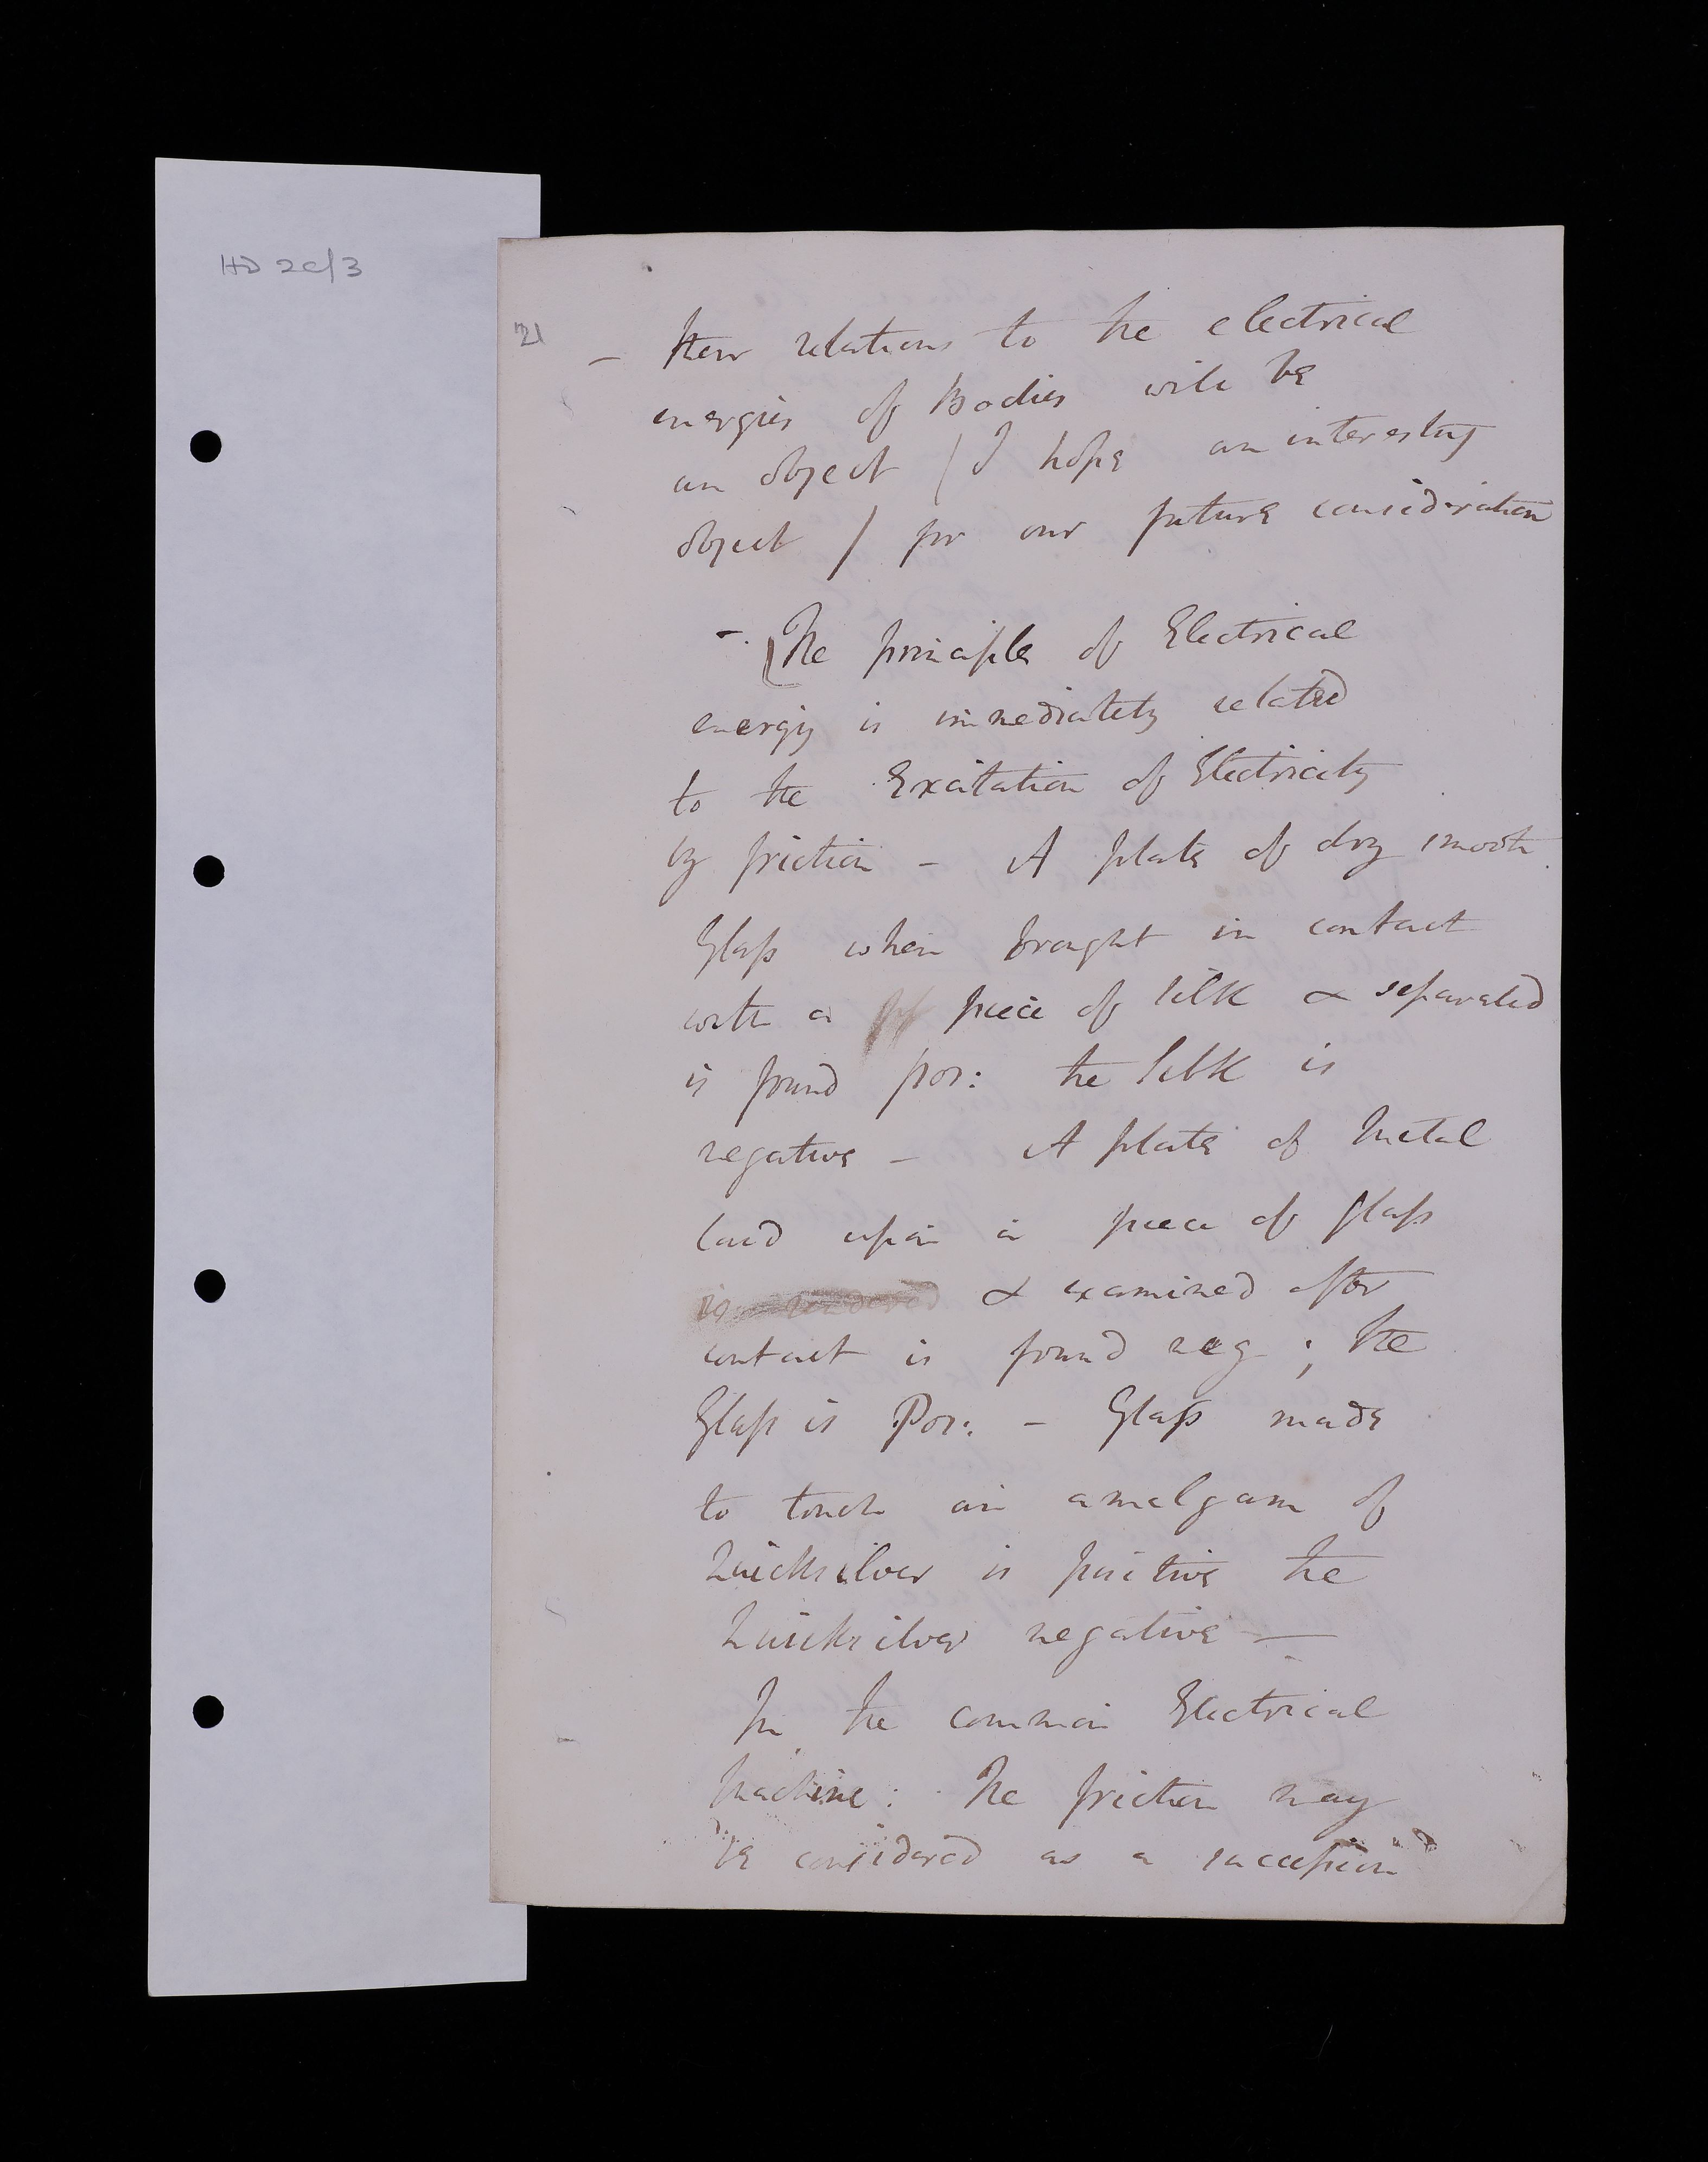 HD 2c/3
21
- Their relations to the electrical
energies of Bodies will be
an object / I hope an interesting
object / for our future consideration
-. The principle of Electrical
energy is immediately related
to the Excitation of Electricity
by friction - A plate of dry smooth
Glass when brought in contact
with a piece of silk & separated
is found pos: the silk is
negative - A plate of Metal
laid upon a piece of glass
is rendered & examined after
contact is found neg ; the
Glass is Pos: - Glass made
to touch an amalgam of
Quicksilver is positive the
Quicksilver negative -
In the common Electrical
Machine: the friction may
be considered as a succession